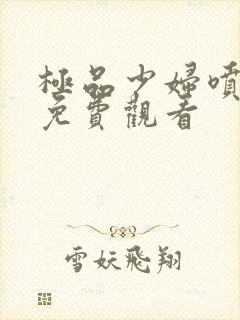 極品少婦噴
免費觀看
雪妖飛翔